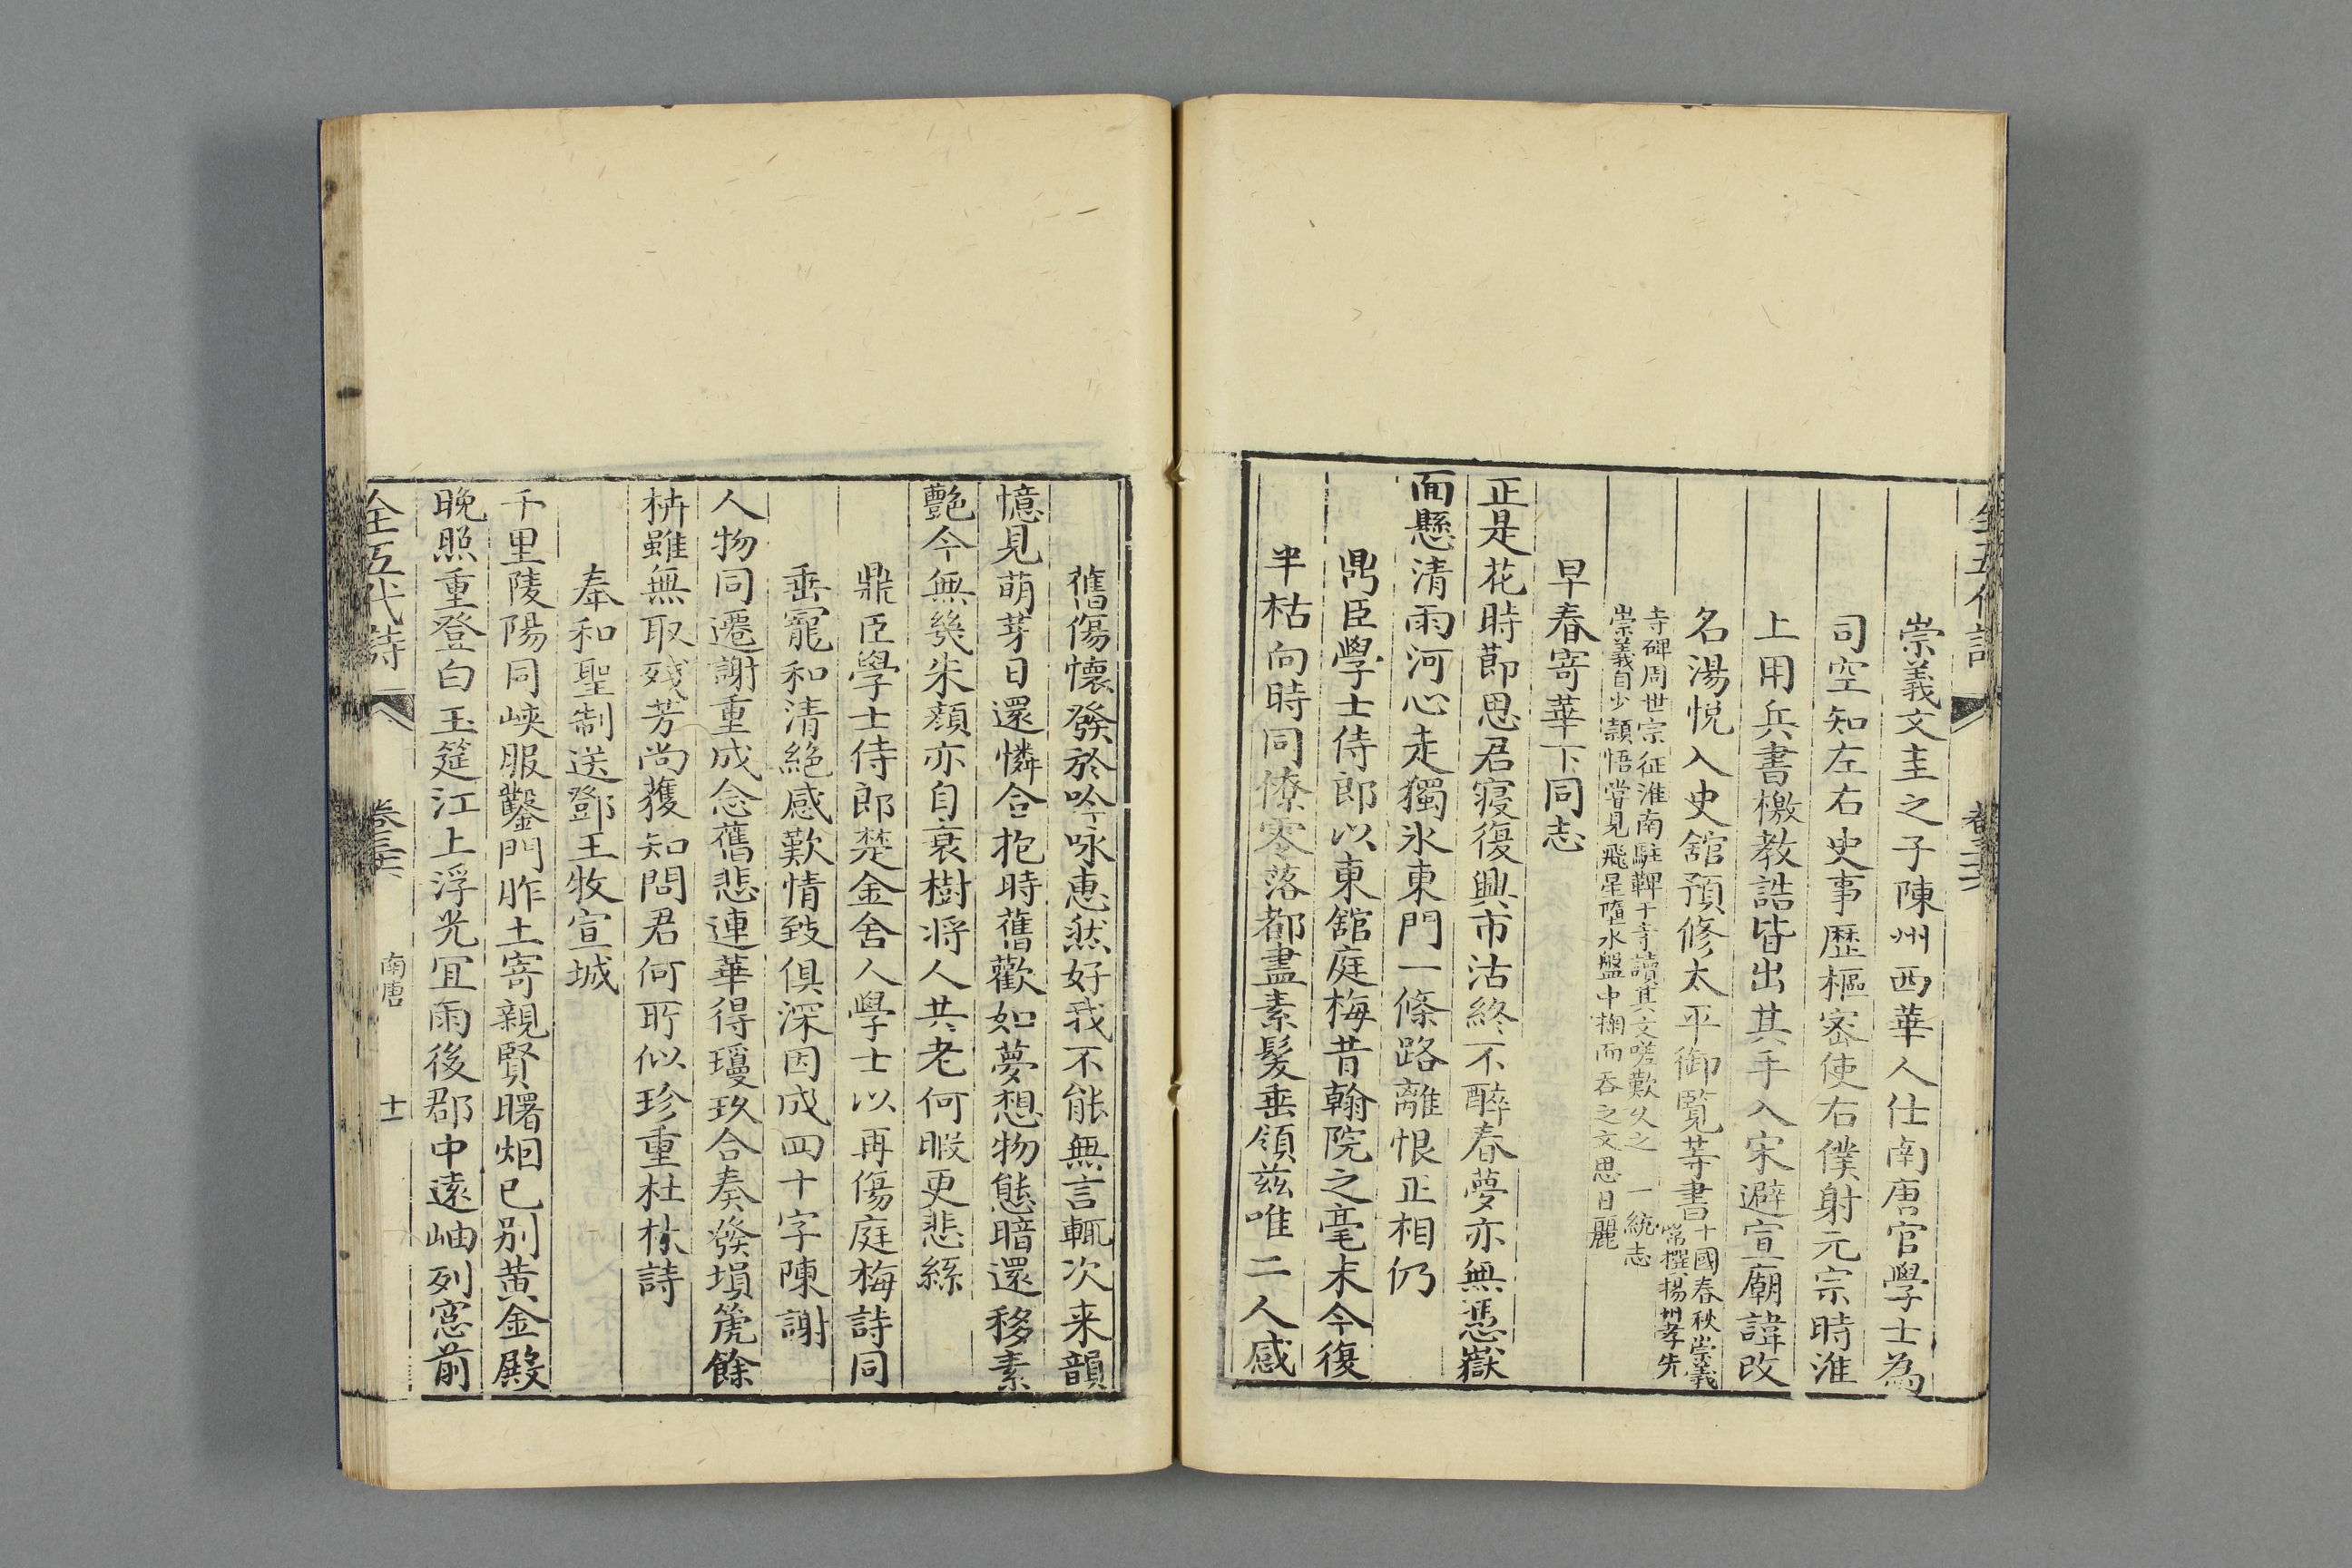 崇義文圭之子陳州西華人仕南唐官學士為
司空知左右史事歷樞宻使右僕射元宗時淮
上用兵書檄教誥皆出其手入宋避宣廟諱改
名湯悦入史舘預修太平御覧等書十國春秋崇義
常撰揚州孝先
寺碑周世宗征淮南駐鞞于寺讀其文嗟歎久之 一統志
崇義自少頴悟嘗見飛星墮水盤中掬而吞之文思日麗
早春寄華下同志
正是花時莭思君寢復興市沽終不醉春夢亦無憑嶽
面懸清雨河心走獨氷東門一條路離恨正相仍
鼎臣學士侍郎以東舘庭梅昔翰院之毫末今復
半枯向時同僚零落都盡素髪垂領茲唯二人感
舊傷懷發於吟咏惠然好我不能無言輒次来韻
憶見萌芽日還憐合抱時舊歡如夢想物態暗還移素
艷今無幾朱顔亦自衰樹将人共老何暇更悲絲
鼎臣學士侍郎楚金舍人學士以再傷庭梅詩同
垂寵和清絶感歎情致俱深因成四十字陳謝
人物同遷謝重成念舊悲連華得瓊玖合奏發塤篪餘
枿雖無取殘芳尚獲知問君何所似珍重杜秌詩
奉和聖制送鄧王牧宣城
千里陵陽同峽服鑿門胙土寄親賢曙烟已别黄金殿
晚照重登白玉筵江上浮光宜雨後郡中遠岫列窓前
全五代詩
卷三十六
南唐
十一